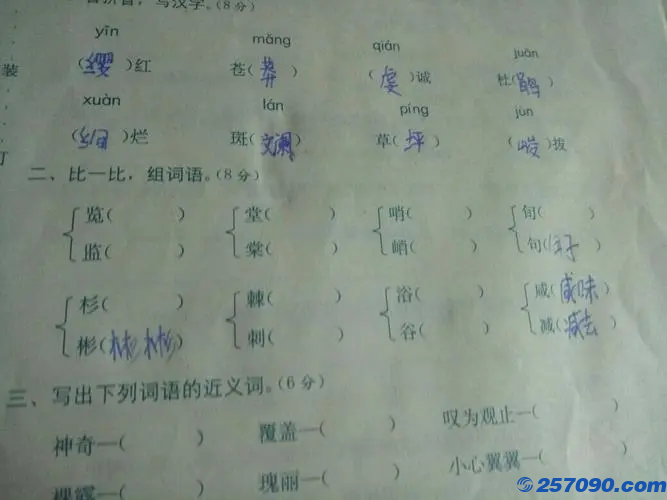 看拼音，写汉字。(8分)
yīn mǎng qián juān
(缨)红 苍(莽) (虔)诚 杜(鹃)
装
xuàn lán píng jùn
(绚)烂 斑(斓) 草(坪) (峻)拔
订
二、比一比，组词语。(8分)
览( ) 堂( ) 哨( ) 旬( )
监( ) 棠( ) 峭( ) 句(句子)
杉( ) 棘( ) 浴( ) 咸(咸味)
彬(彬彬) 刺( ) 谷( ) 减(减去)
三、写出下列词语的近义词。(6分)
神奇—( ) 覆盖—( ) 叹为观止—( )
裸露—( ) 瑰丽—( ) 小心翼翼—( )
257090.com